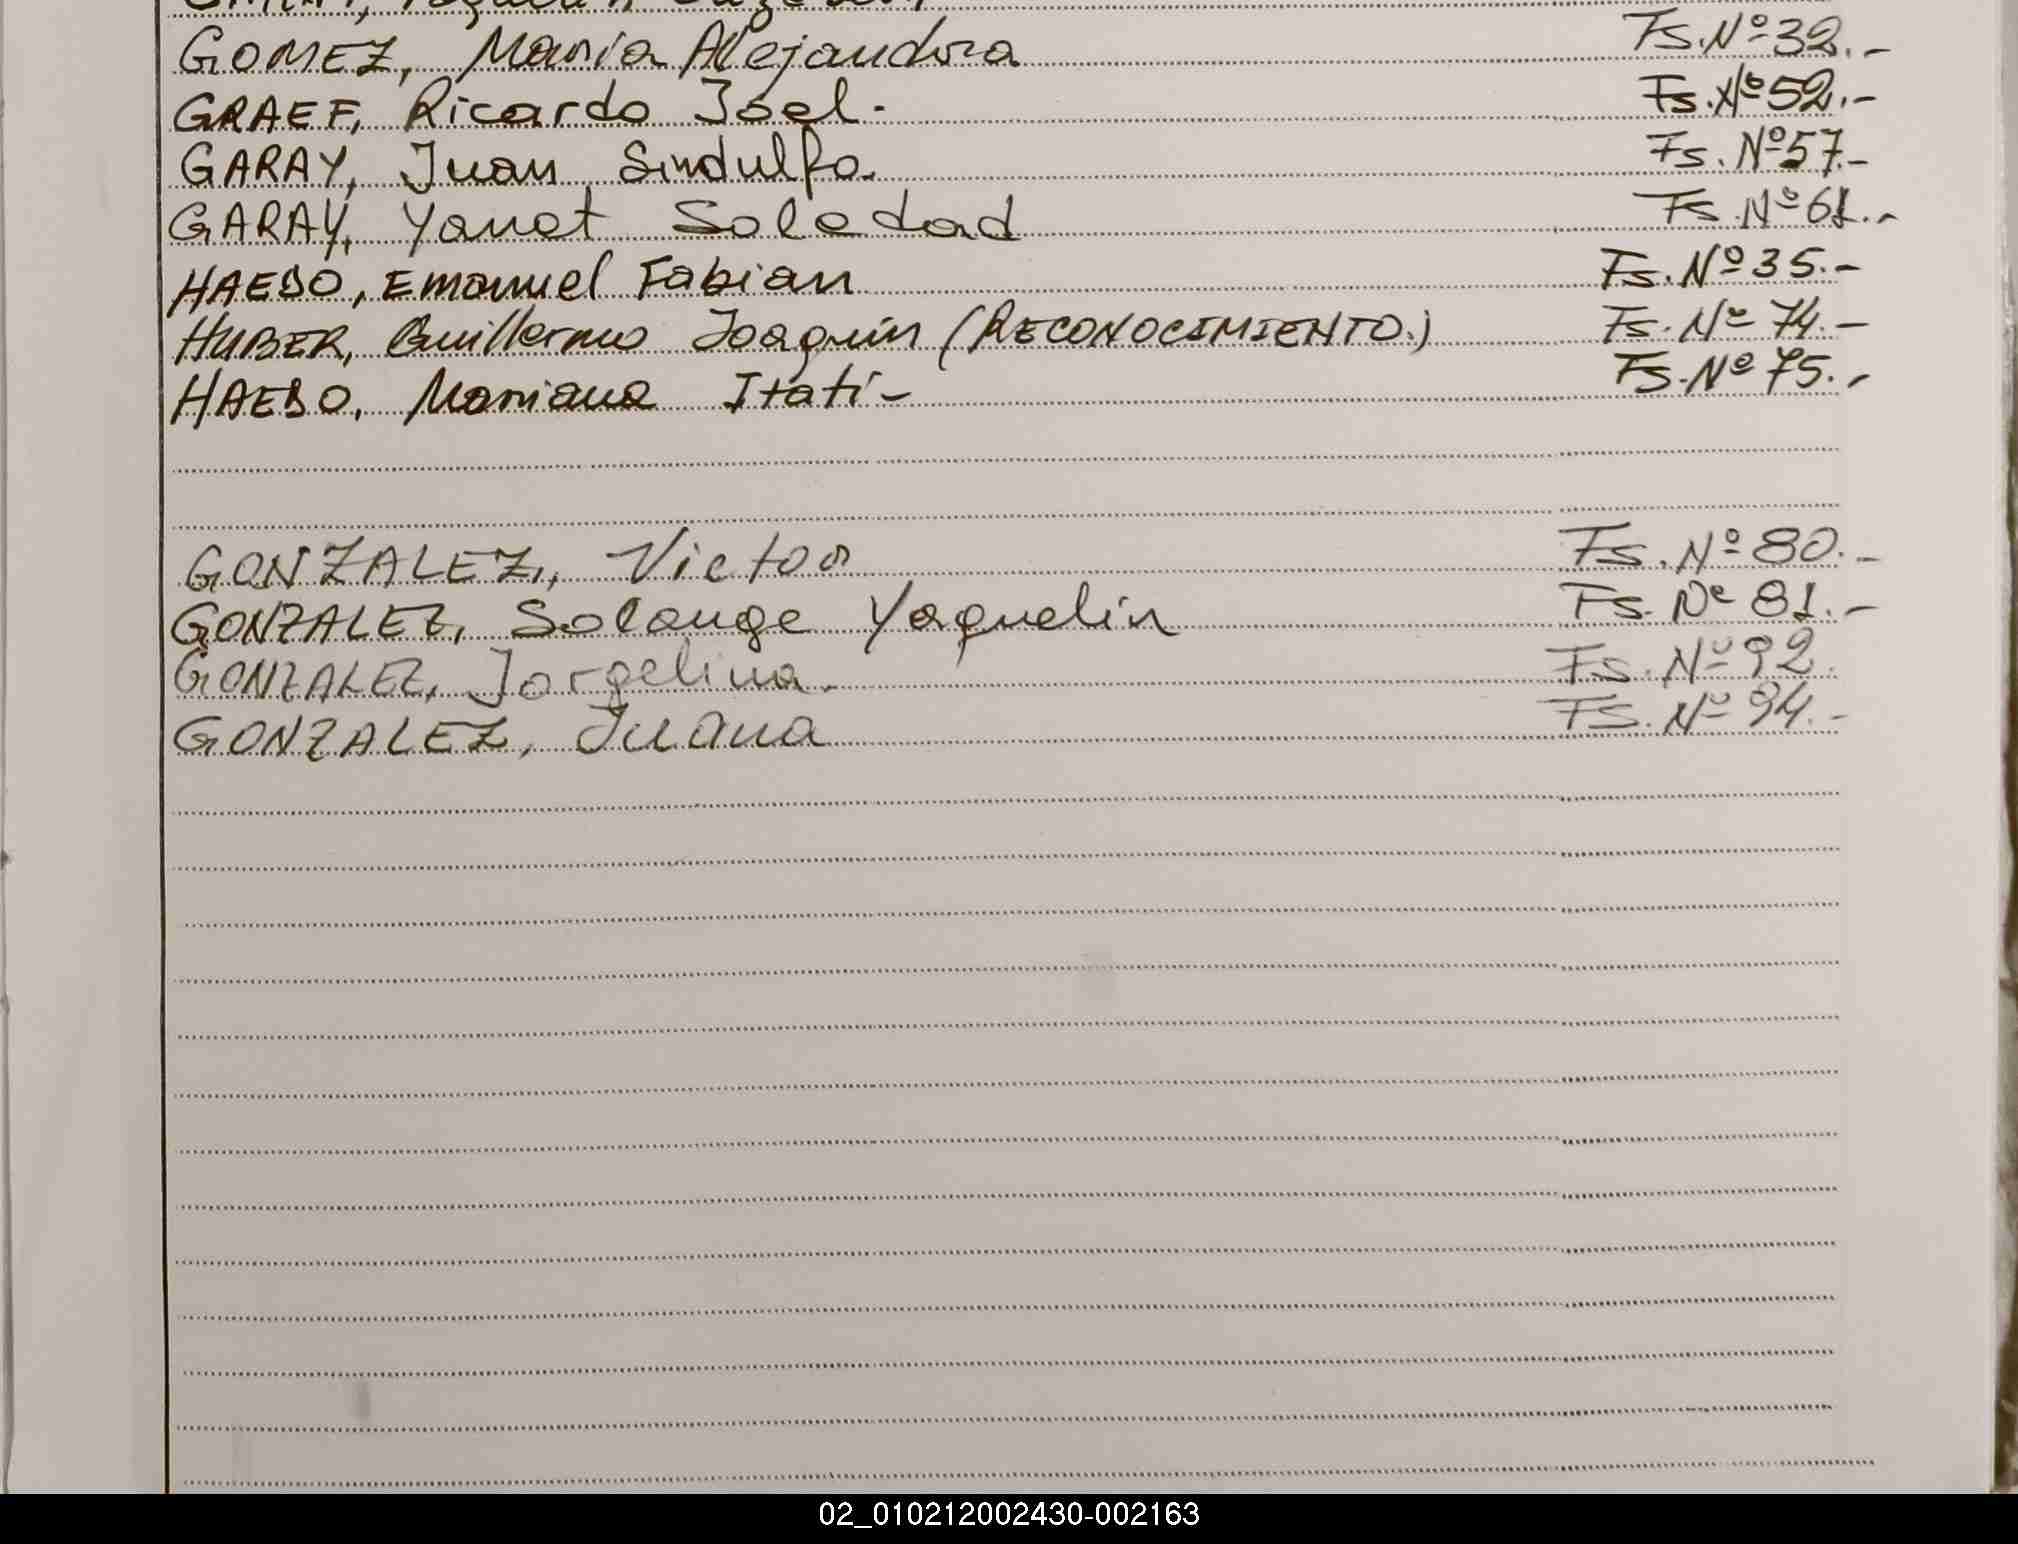 GOMEZ, Maria Alejandra Fs. Nº 32.-
GRAEF, Ricardo Joel.- Fs. Nº 52.-
GARAY, Juan Sindulfo. Fs. Nº 57.-
GARAY, Yanet Soledad Fs. Nº 61.-
HAEDO, Emanuel Fabian Fs. Nº 35.-
HUBER, Guillermo Joaquin (RECONOCIMIENTO.) Fs. Nº 74.-
HAEDO, Mariana Itatí- Fs. Nº 75.-
GONZALEZ, Victor Fs. Nº 80.-
GONZALEZ, Solange Yaquelin Fs. Nº 81.-
GONZALEZ, Jorgelina. Fs. Nº 92.
GONZALEZ, Juana Fs. Nº 94.-
02_010212002430-002163